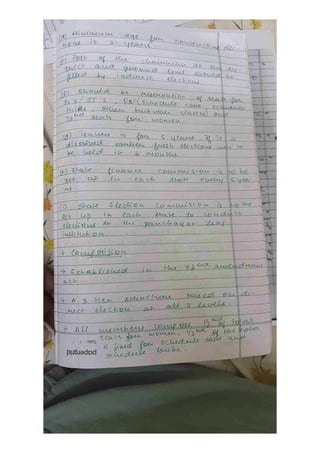 (d) Minimum age for conducting elec-
tions is 21 years
(e) Post of the chairman at the dis-
trict and ground level should be
filled by indirect elections
(f) Should be reservation of seats for
SC's/ST's, OBC (schedule caste, schedule
tribe, other backward classes) and
1/3rd seats for women.
(g) Tenure is for 5 years. If it is
dissolved earlier fresh elections
be held in 6 months
(h) State finance commission is to be
set up in each state every 5 yea
rs
(i) State Election Commission is to be
set up in each state to conduct
elections to the panchayat
institution
→ Composition
→ Established in the 73rd amendment
act.
→ A 3 tier structure based on di-
rect election at all 3 levels.
→ All members compose of total
seats for women, of the total
is fixed for schedule caste and
schedule tribe.
papergrid
Date: / /